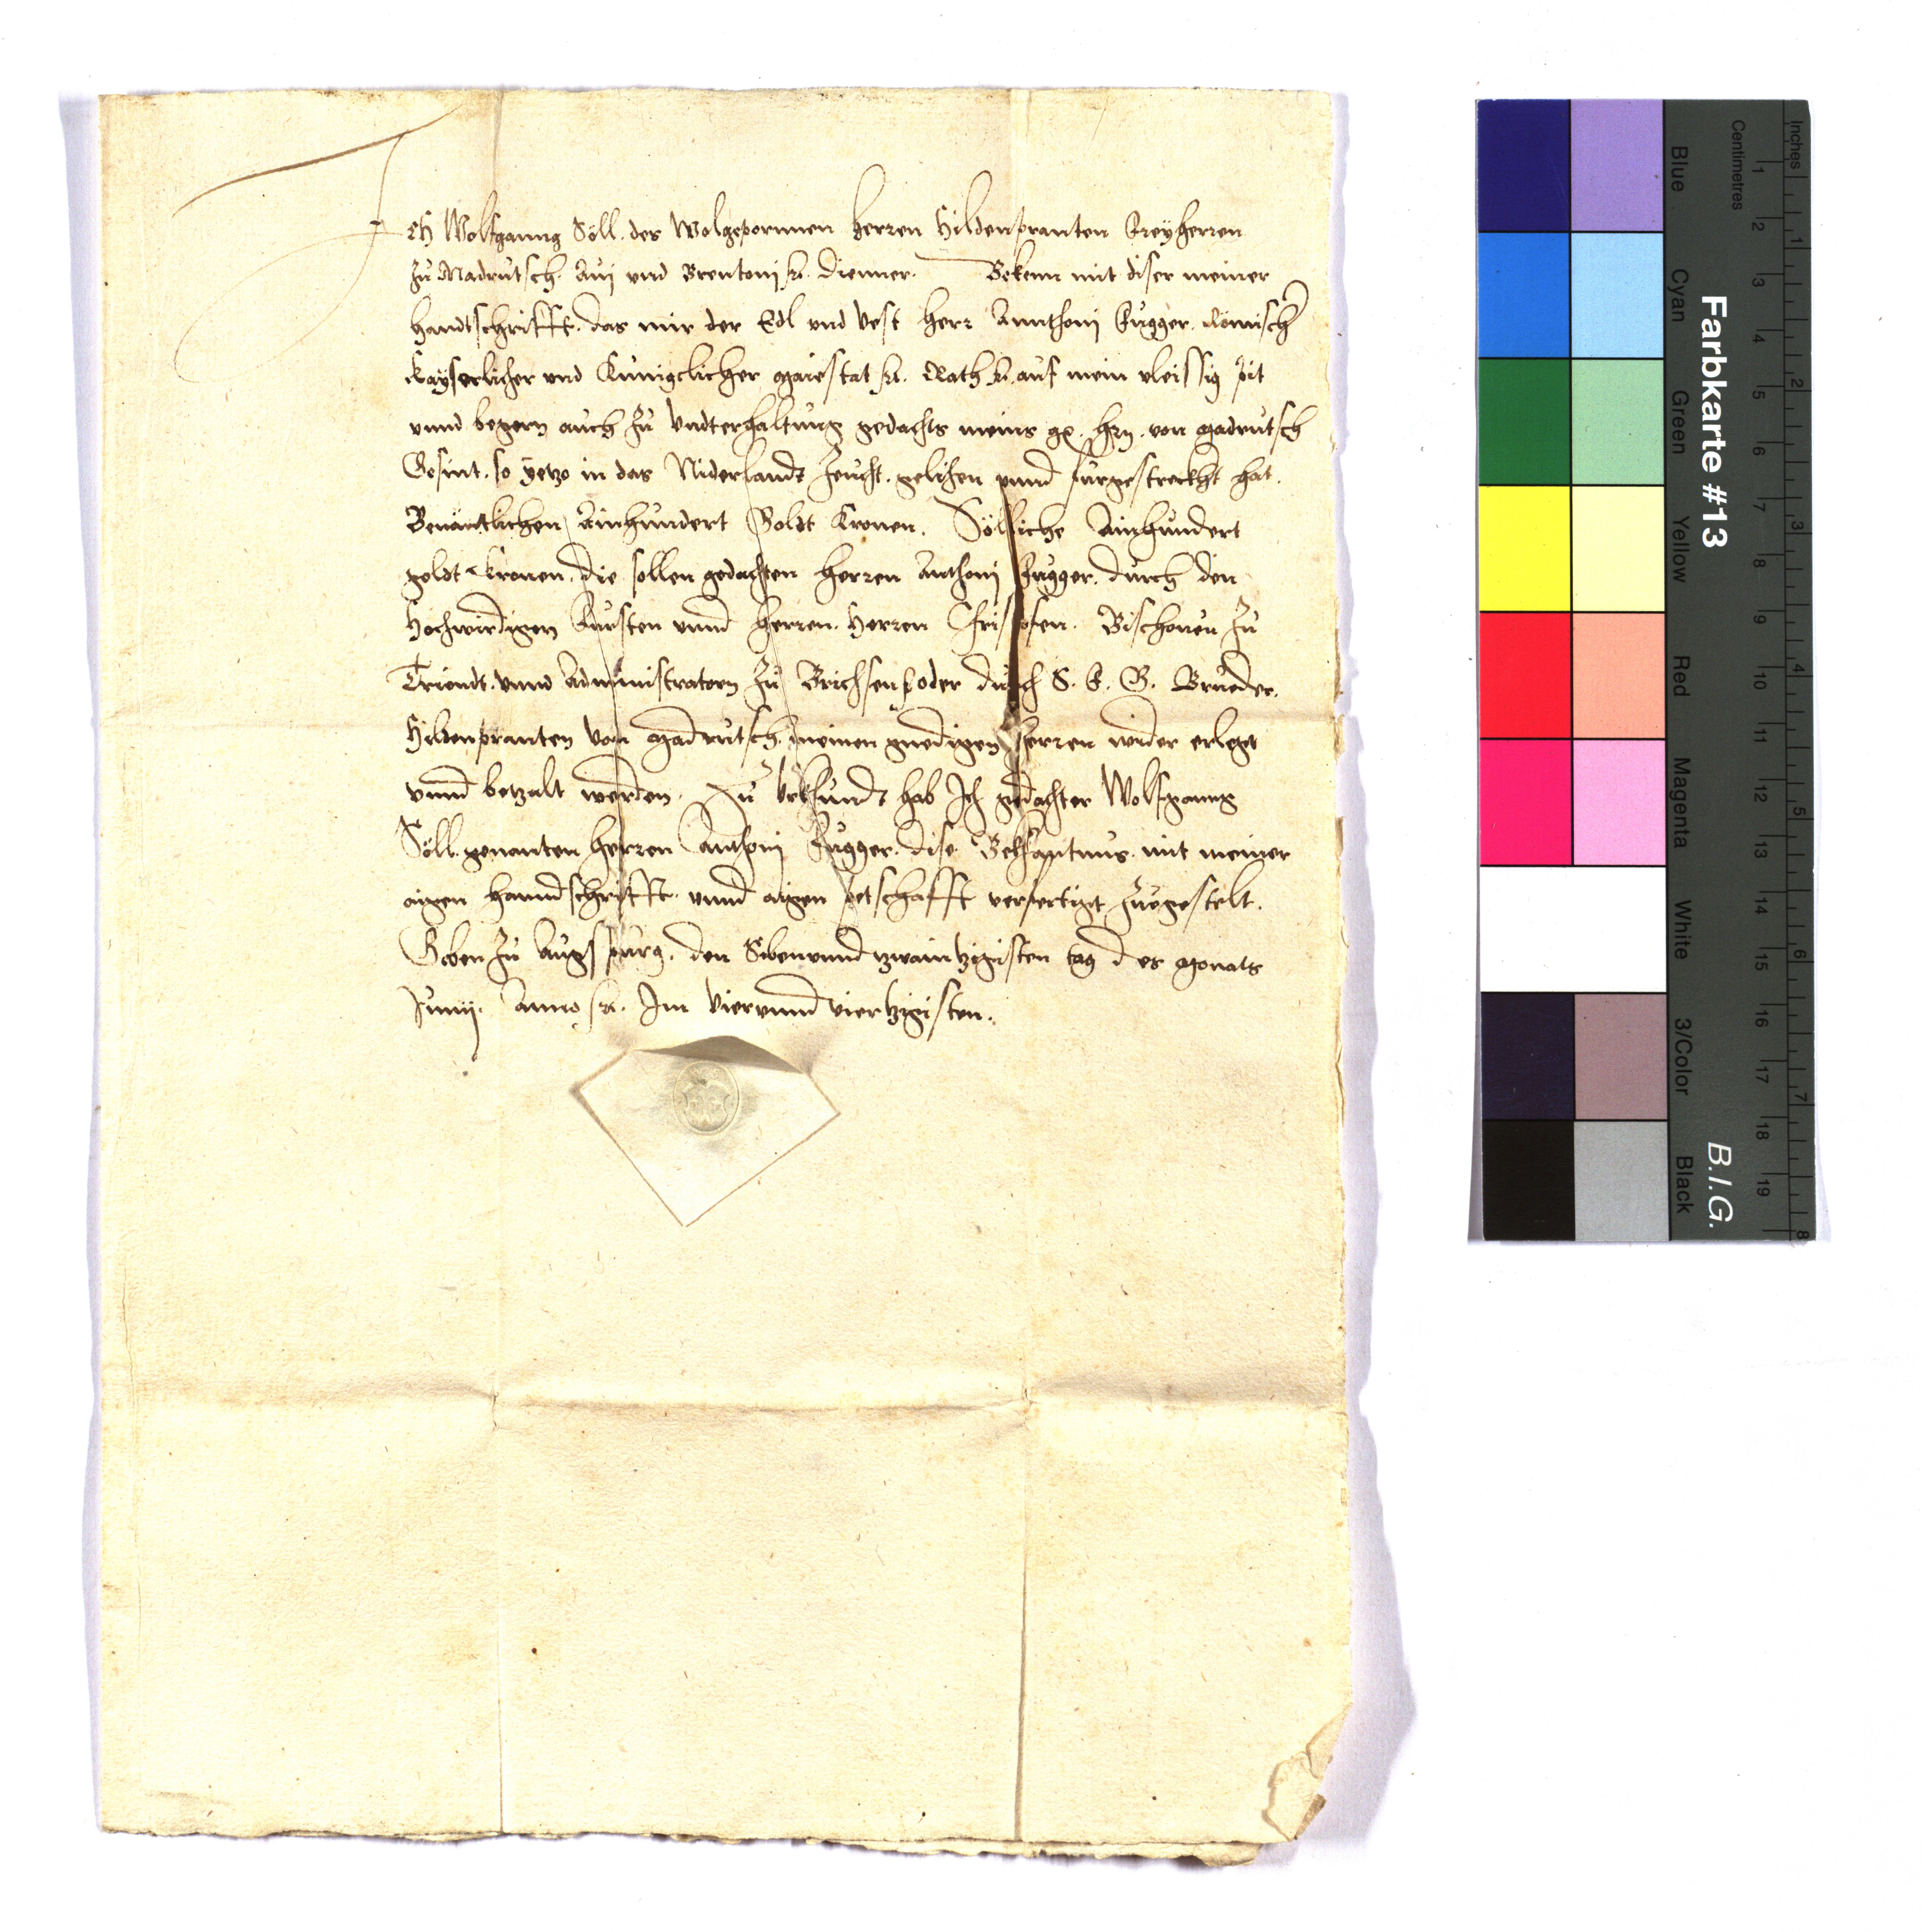 Ich Wolfganng Söll. des Wolgepornnen herren Hildenpranten Freyherren
zu Madrutsch. Avij vnd Brentonj etc. dienner. Bekenn mit diser meiner
handtschrifft. das mir der Edl vnd Vest herr Annthonj Fugger. Römischer
Kayserlicher vnd Kunigclicher Maiestat etc. Rath etc. auf mein vleissig pit
vnnd begern auch zu Vndterhaltung gedachts meins gn. hrn. von Madrutsch
Gesint. so yetzo in das Niderlandt zeucht. gelihen vnnd furgestreckht hat.
Benäntlichen Ainhundert Goldt Kronen. Sölliche Ainhundert
goldt Kronen. die sollen gedachten herren Anthonj Fugger. durch den
Hochwirdigen Fursten vnnd herren. Herren Christofen. Bischouen zu
Triendt. vnnd Administratorn zu Brichsen etc. oder durch S. F. G. Brueder.
Hildenpranten von Madrutsch. meinen gnedigen herren wider erlegt
vnnd betzalt werden. Zu Vrkhundt hab Ich gedachter Wolfganng
Söll. genanten herren Anthonj Fugger. dise Bekhantnus. mit meiner
aigen hanndschrifft. vnnd aigen petschafft verfertigt zuegestelt.
Geben zu Augspurg. den Sibenvnndtzwaintzigisten tag des Monats
Junij. Anno etc. Im Viervnndviertzigisten.
Farbkarte #13
B.I.G.
Inches
Centimetres
1 2 3 4 5 6 7 8 9 10 11 12 13 14 15 16 17 18 19
1 2 3 4 5 6 7 8
Blue
Cyan
Green
Yellow
Red
Magenta
White
3/Color
Black